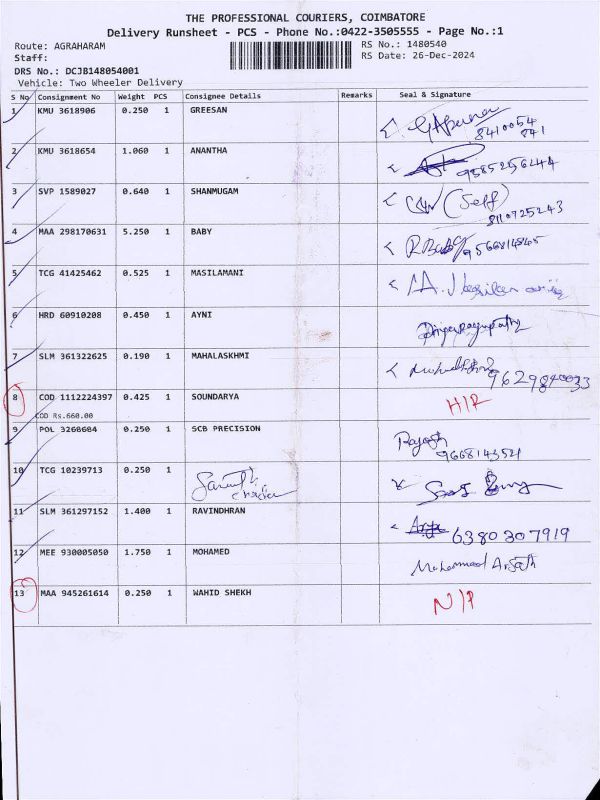 THE PROFESSIONAL COURIERS, COIMBATORE
Delivery Runsheet - PCS - Phone No.:0422-3505555 - Page No.:1
Route: AGRAHARAM
RS No.: 1480540
Staff:
RS Date: 26-Dec-2024
DRS No.: DCJB148054001
Vehicle: Two Wheeler Delivery
S No Consignment No Weight PCS Consignee Details Remarks Seal & Signature
1 KMU 3618906 0.250 1 GREESAN
8410054
841
2 KMU 3618654 1.060 1 ANANTHA
9585256444
3 SVP 1589027 0.640 1 SHANMUGAM (Self)
8110725243
4 MAA 298170631 5.250 1 BABY
5 TCG 41425462 0.525 1 MASILAMANI
6 HRD 60910208 0.450 1 AYNI
7 SLM 361322625 0.190 1 MAHALASKHMI
8 COD 1112224397 0.425 1 SOUNDARYA
COD Rs.660.00
9 POL 3268604 0.250 1 SCB PRECISION Rajesh
9668143521
10 TCG 10239713 0.250 1
11 SLM 361297152 1.400 1 RAVINDHRAN 6380307919
12 MEE 930005050 1.750 1 MOHAMED Mohammad Arsath
13 MAA 945261614 0.250 1 WAHID SHEKH N/P